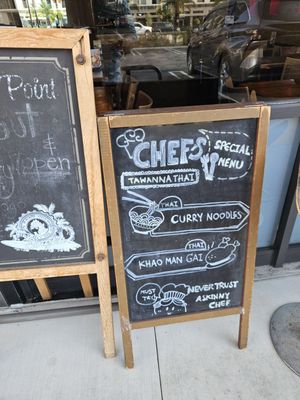 Point
out
&
open
CHEFS
SPECIAL
MENU
TAWANNA THAI
THAI
CURRY NOODLES
THAI
KHAO MAN GAI
MUST
TRY
NEVER TRUST
A SKINNY
CHEF